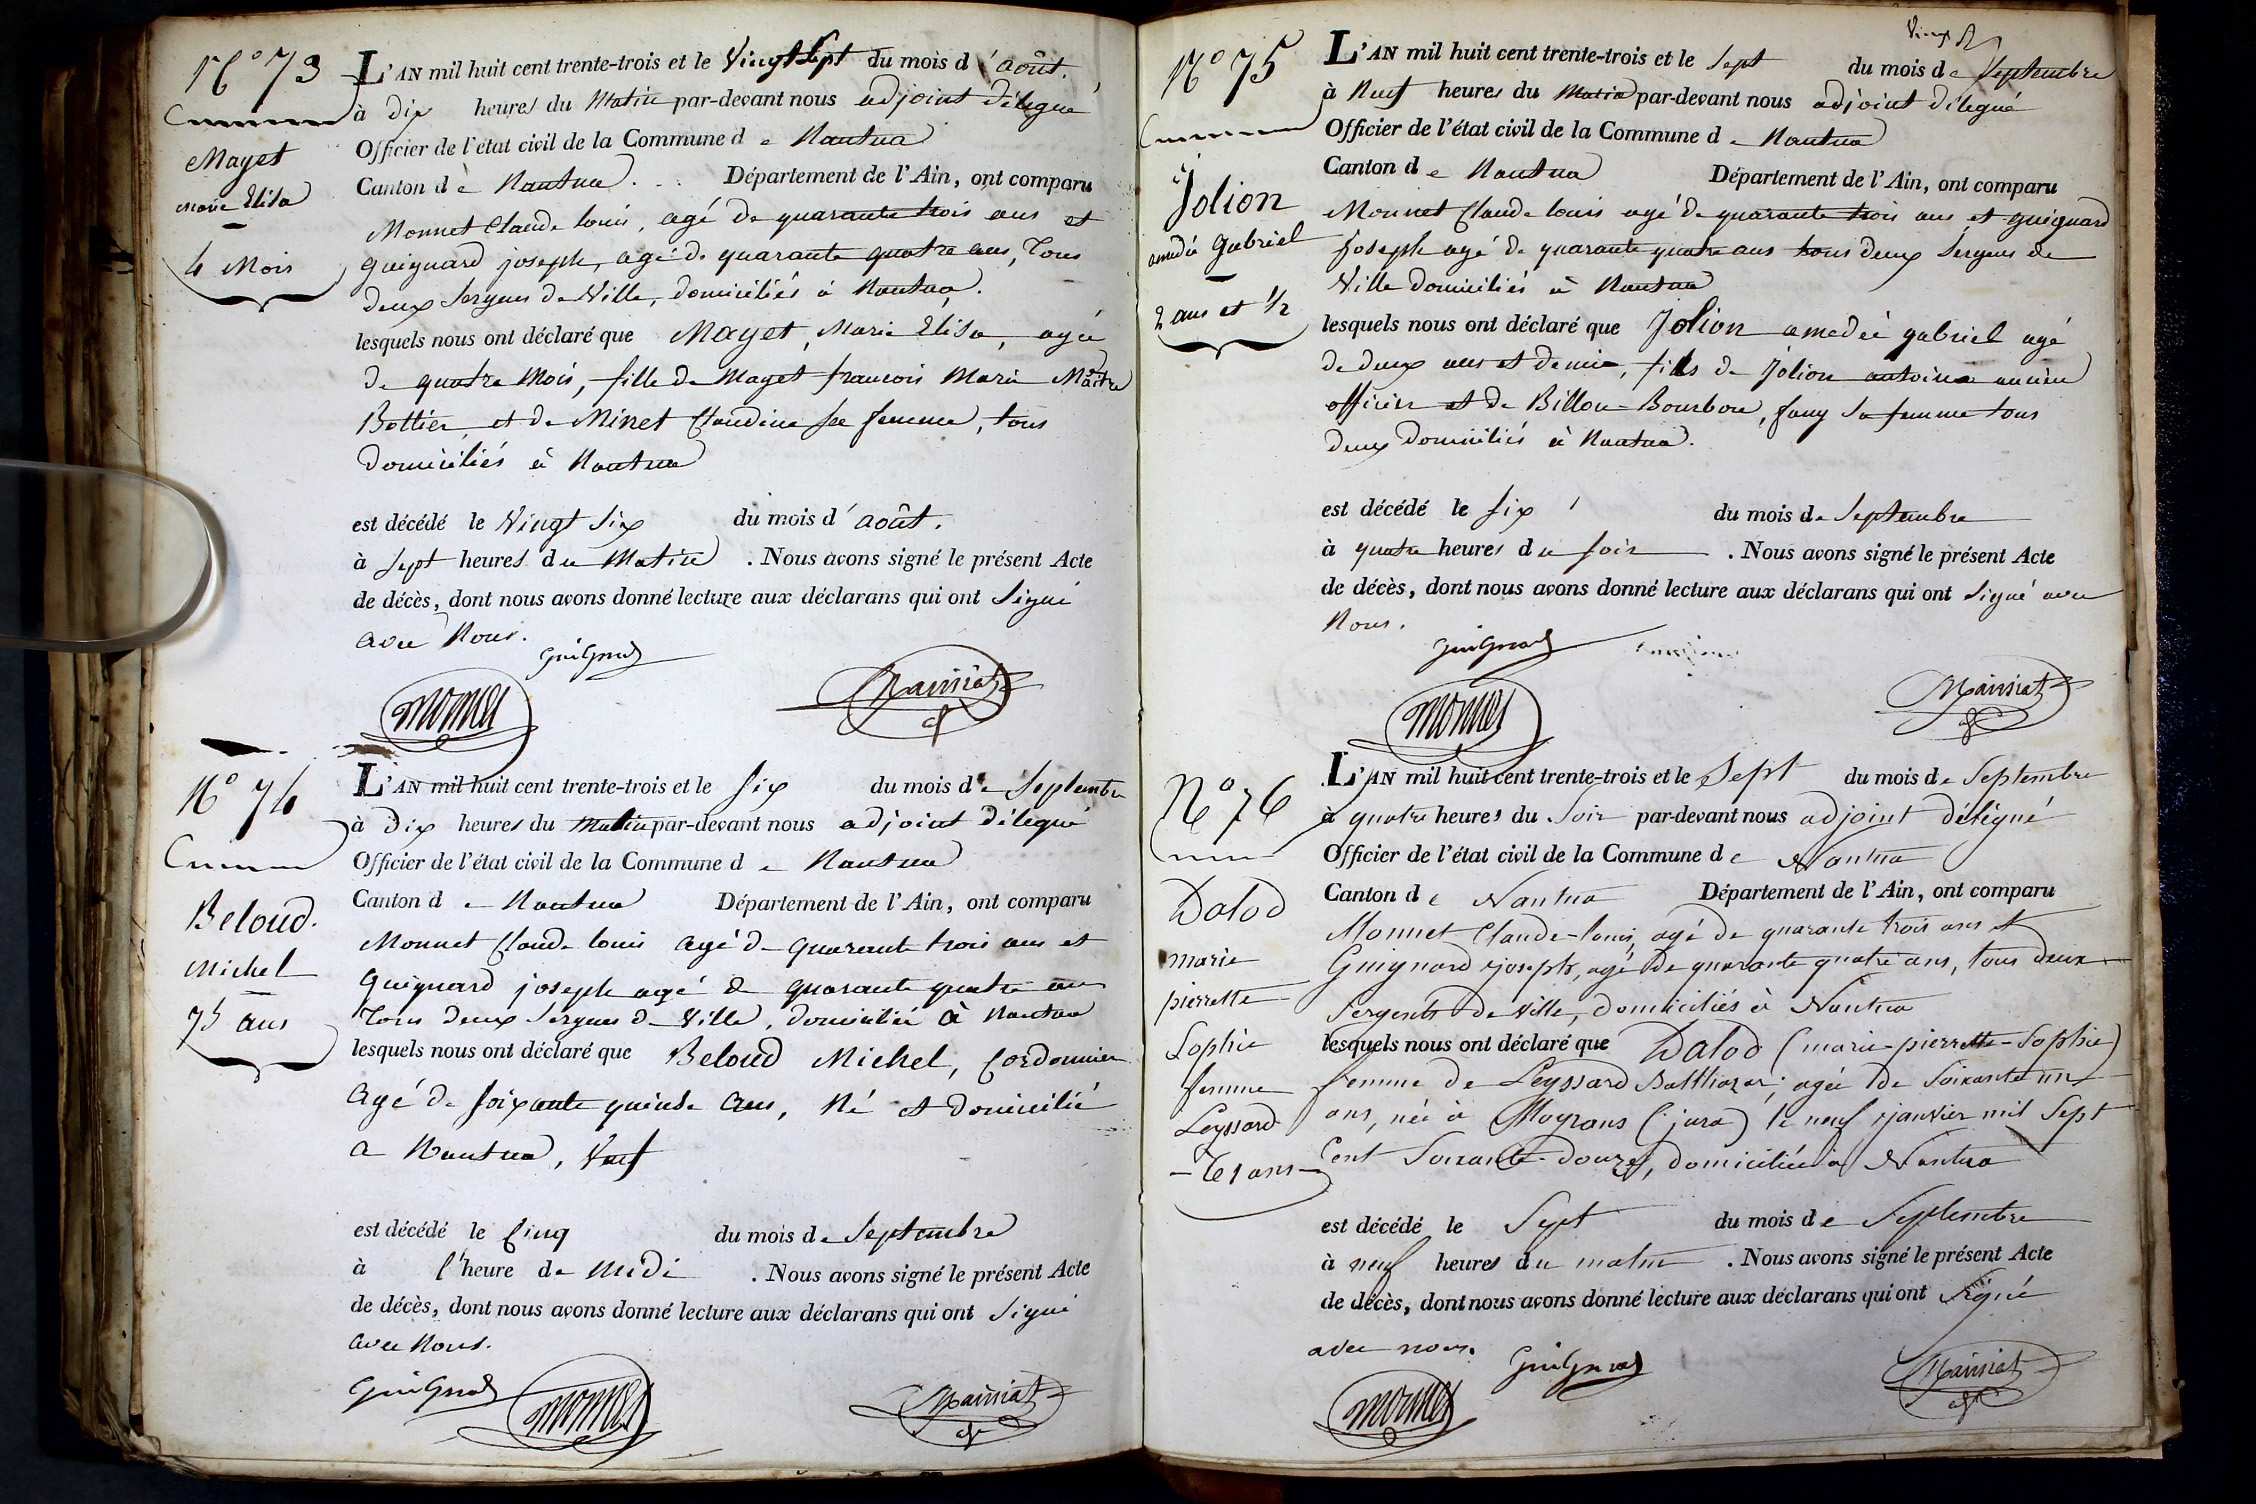 N° 73
Mayet
Marie Elisa
4 Mois
L'AN mil huit cent trente-trois et le Vingt Sept du mois d'août.
à dix heures du Matin par-devant nous adjoint délégué
Officier de l'état civil de la Commune de Nantua
Canton de Nantua. Département de l'Ain, ont comparu
Monnet Claude louis, agé de quarante trois ans et
Guignard joseph, agé de quarante quatre ans, Tous
deux Sergens de Ville, domiciliés à Nantua.
lesquels nous ont déclaré que Mayet, Marie Elisa, agée
de quatre Mois, fille de Mayet francois Marie Maitre
Bottier, et de Minet Claudine sa femme, tous
domiciliés à Nantua
est décédé le Vingt Six du mois d'août.
à Sept heures du Matin. Nous avons signé le présent Acte
de décès, dont nous avons donné lecture aux déclarans qui ont Signé
avec Nous.
Guignard
Monnet
Mainiat
N° 74
Beloud.
Michel
75 ans
L'AN mil huit cent trente-trois et le Six du mois de Septembre
à Dix heures du Matin par-devant nous adjoint délégué
Officier de l'état civil de la Commune de Nantua
Canton de Nantua Département de l'Ain, ont comparu
Monnet Claude louis agé de quarante trois ans et
Guignard joseph agé de quarante quatre ans
Tous deux Sergens de Ville, domiciliés à Nantua
lesquels nous ont déclaré que Beloud Michel, Cordonnier
Agé de soixante quinze ans, Né et domicilié
a Nantua, Veuf
est décédé le Cinq du mois de Septembre
à l'heure de Midi. Nous avons signé le présent Acte
de décès, dont nous avons donné lecture aux déclarans qui ont Signé
avec Nous.
Guignard
Monnet
Mainiat
N° 75
Jolion
amédé Gabriel
2 ans et 1/2
L'AN mil huit cent trente-trois et le Sept du mois de Septembre
à Neuf heures du Matin par-devant nous adjoint délégué
Officier de l'état civil de la Commune de Nantua
Canton de Nantua Département de l'Ain, ont comparu
Monnet Claude louis agé de quarante trois ans et guignard
Joseph agé de quarante quatre ans tous deux Sergens de
Ville domiciliés à Nantua
lesquels nous ont déclaré que Jolion amedée gabriel agé
de deux ans et demie, fils de Jolion antoine ancien
officier et de Billon-Bourbon, fany sa femme tous
deux domiciliés à Nantua.
est décédé le six du mois de Septembre
à quatre heures du soir. Nous avons signé le présent Acte
de décès, dont nous avons donné lecture aux déclarans qui ont Signé avec
Nous.
Guignard
Monnet
Mainiat
N° 76
Dalod
marie
pierrette
Sophie
femme
Leyssard
61 ans
L'AN mil huit cent trente-trois et le Sept du mois de Septembre
à quatre heures du Soir par-devant nous adjoint délégué
Officier de l'état civil de la Commune de Nantua
Canton de Nantua Département de l'Ain, ont comparu
Monnet Claude-louis, agé de quarante trois ans et
Guignard joseph, agé de quarante quatre ans, tous deux
Sergents de ville, domiciliés à Nantua
lesquels nous ont déclaré que Dalod (marie-pierrette-Sophie)
femme de Leyssard Balthazar, agée de Soixante un
ans, née à Moyrans (jura) le neuf janvier mil Sept
Cent Soixante-douze, domiciliée à Nantua
est décédé le Sept du mois de Septembre
à neuf heures du matin. Nous avons signé le présent Acte
de décès, dont nous avons donné lecture aux déclarans qui ont Signé
avec nous.
Guignard
Monnet
Mainiat